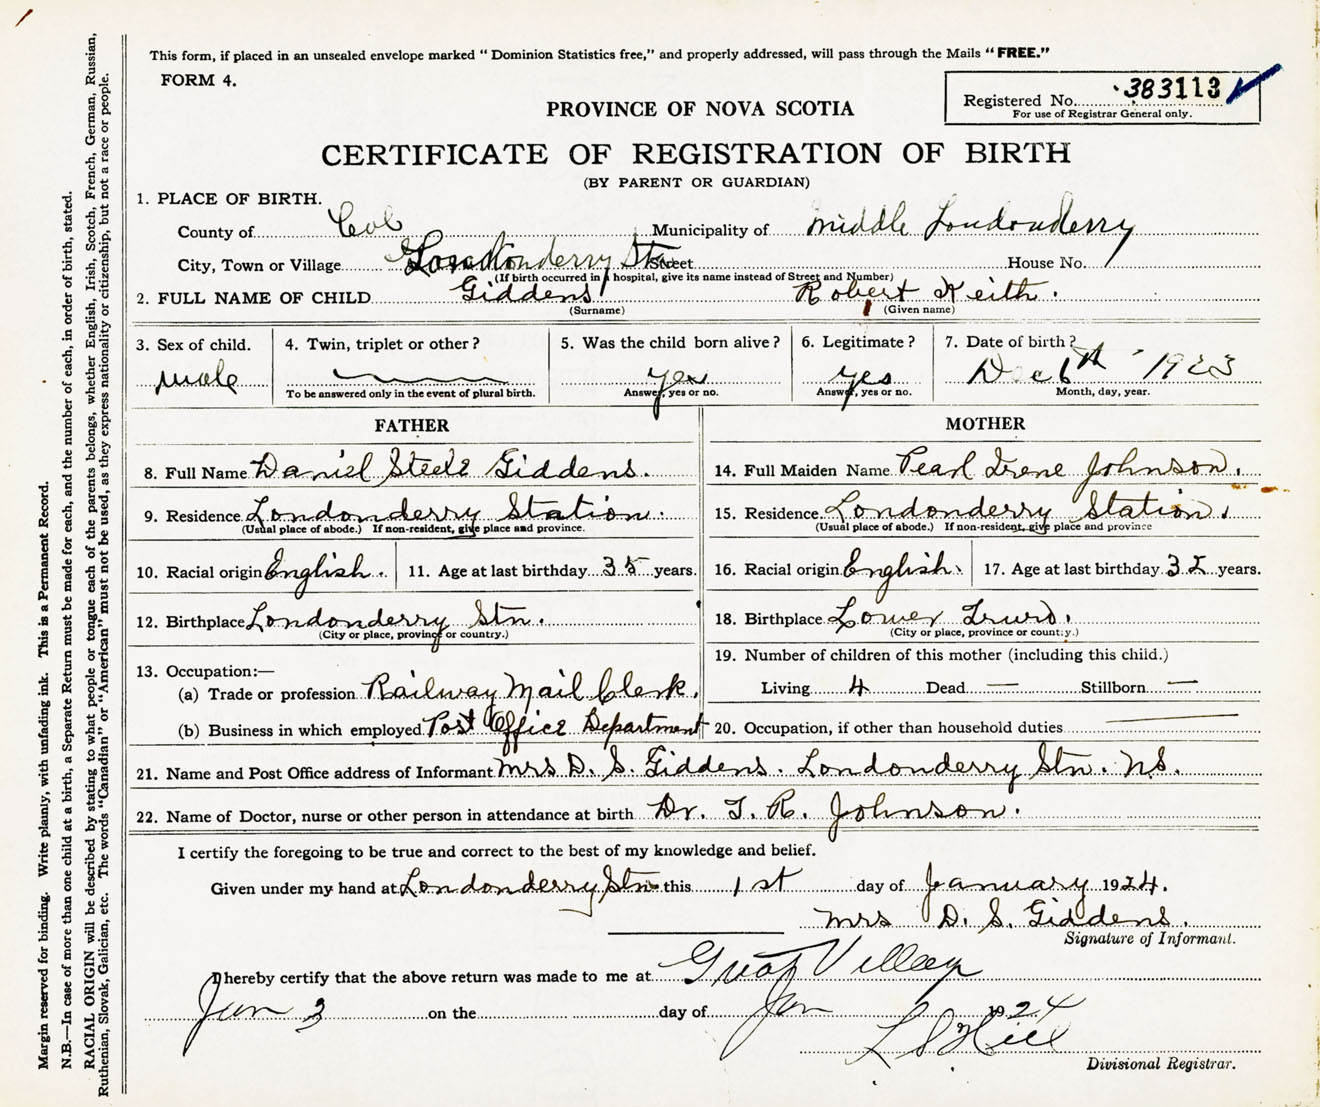 This form, if placed in an unsealed envelope marked "Dominion Statistics free," and properly addressed, will pass through the Mails "FREE."
FORM 4.
Registered No. 383113
For use of Registrar General only.
PROVINCE OF NOVA SCOTIA
CERTIFICATE OF REGISTRATION OF BIRTH
(BY PARENT OR GUARDIAN)
1. PLACE OF BIRTH.
County of Col Municipality of Middle Londonderry
City, Town or Village Londonderry Stn Street House No.
(If birth occurred in a hospital, give its name instead of Street and Number)
2. FULL NAME OF CHILD Giddens Robert Keith.
(Surname) (Given name)
3. Sex of child. 4. Twin, triplet or other? 5. Was the child born alive? 6. Legitimate? 7. Date of birth?
male yes yes Dec 6th 1923
To be answered only in the event of plural birth. Answer, yes or no. Answer, yes or no. Month, day, year.
FATHER MOTHER
8. Full Name Daniel Steele Giddens. 14. Full Maiden Name Pearl Irene Johnson.
9. Residence Londonderry Station. 15. Residence. Londonderry Station.
(Usual place of abode.) If non-resident, give place and province. (Usual place of abode.) If non-resident, give place and province
10. Racial origin English. 11. Age at last birthday 35 years. 16. Racial origin English. 17. Age at last birthday 32 years.
12. Birthplace Londonderry Stn. 18. Birthplace Lower Truro.
(City or place, province or country.) (City or place, province or country.)
13. Occupation:— 19. Number of children of this mother (including this child.)
(a) Trade or profession Railway Mail Clerk. Living 4 Dead — Stillborn —
(b) Business in which employed Post Office Department 20. Occupation, if other than household duties
21. Name and Post Office address of Informant Mrs D. S. Giddens. Londonderry Stn. N.S.
22. Name of Doctor, nurse or other person in attendance at birth Dr. T. R. Johnson.
I certify the foregoing to be true and correct to the best of my knowledge and belief.
Given under my hand at Londonderry Stn. this 1st day of January 1924.
Mrs D. S. Giddens.
Signature of Informant.
I hereby certify that the above return was made to me at Great Village
Jan 3 on the day of Jan 1924
Hill
Divisional Registrar.
Margin reserved for binding. Write plainly, with unfading ink. This is a Permanent Record.
N.B.—In case of more than one child at a birth, a Separate Return must be made for each, and the number of each, in order of birth, stated.
RACIAL ORIGIN will be described by stating to what people or tongue each of the parents belongs, whether English, Irish, Scotch, French, German, Russian,
Ruthenian, Slovak, Galician, etc. The words "Canadian" or "American" must not be used, as they express nationality or citizenship, but not a race or people.